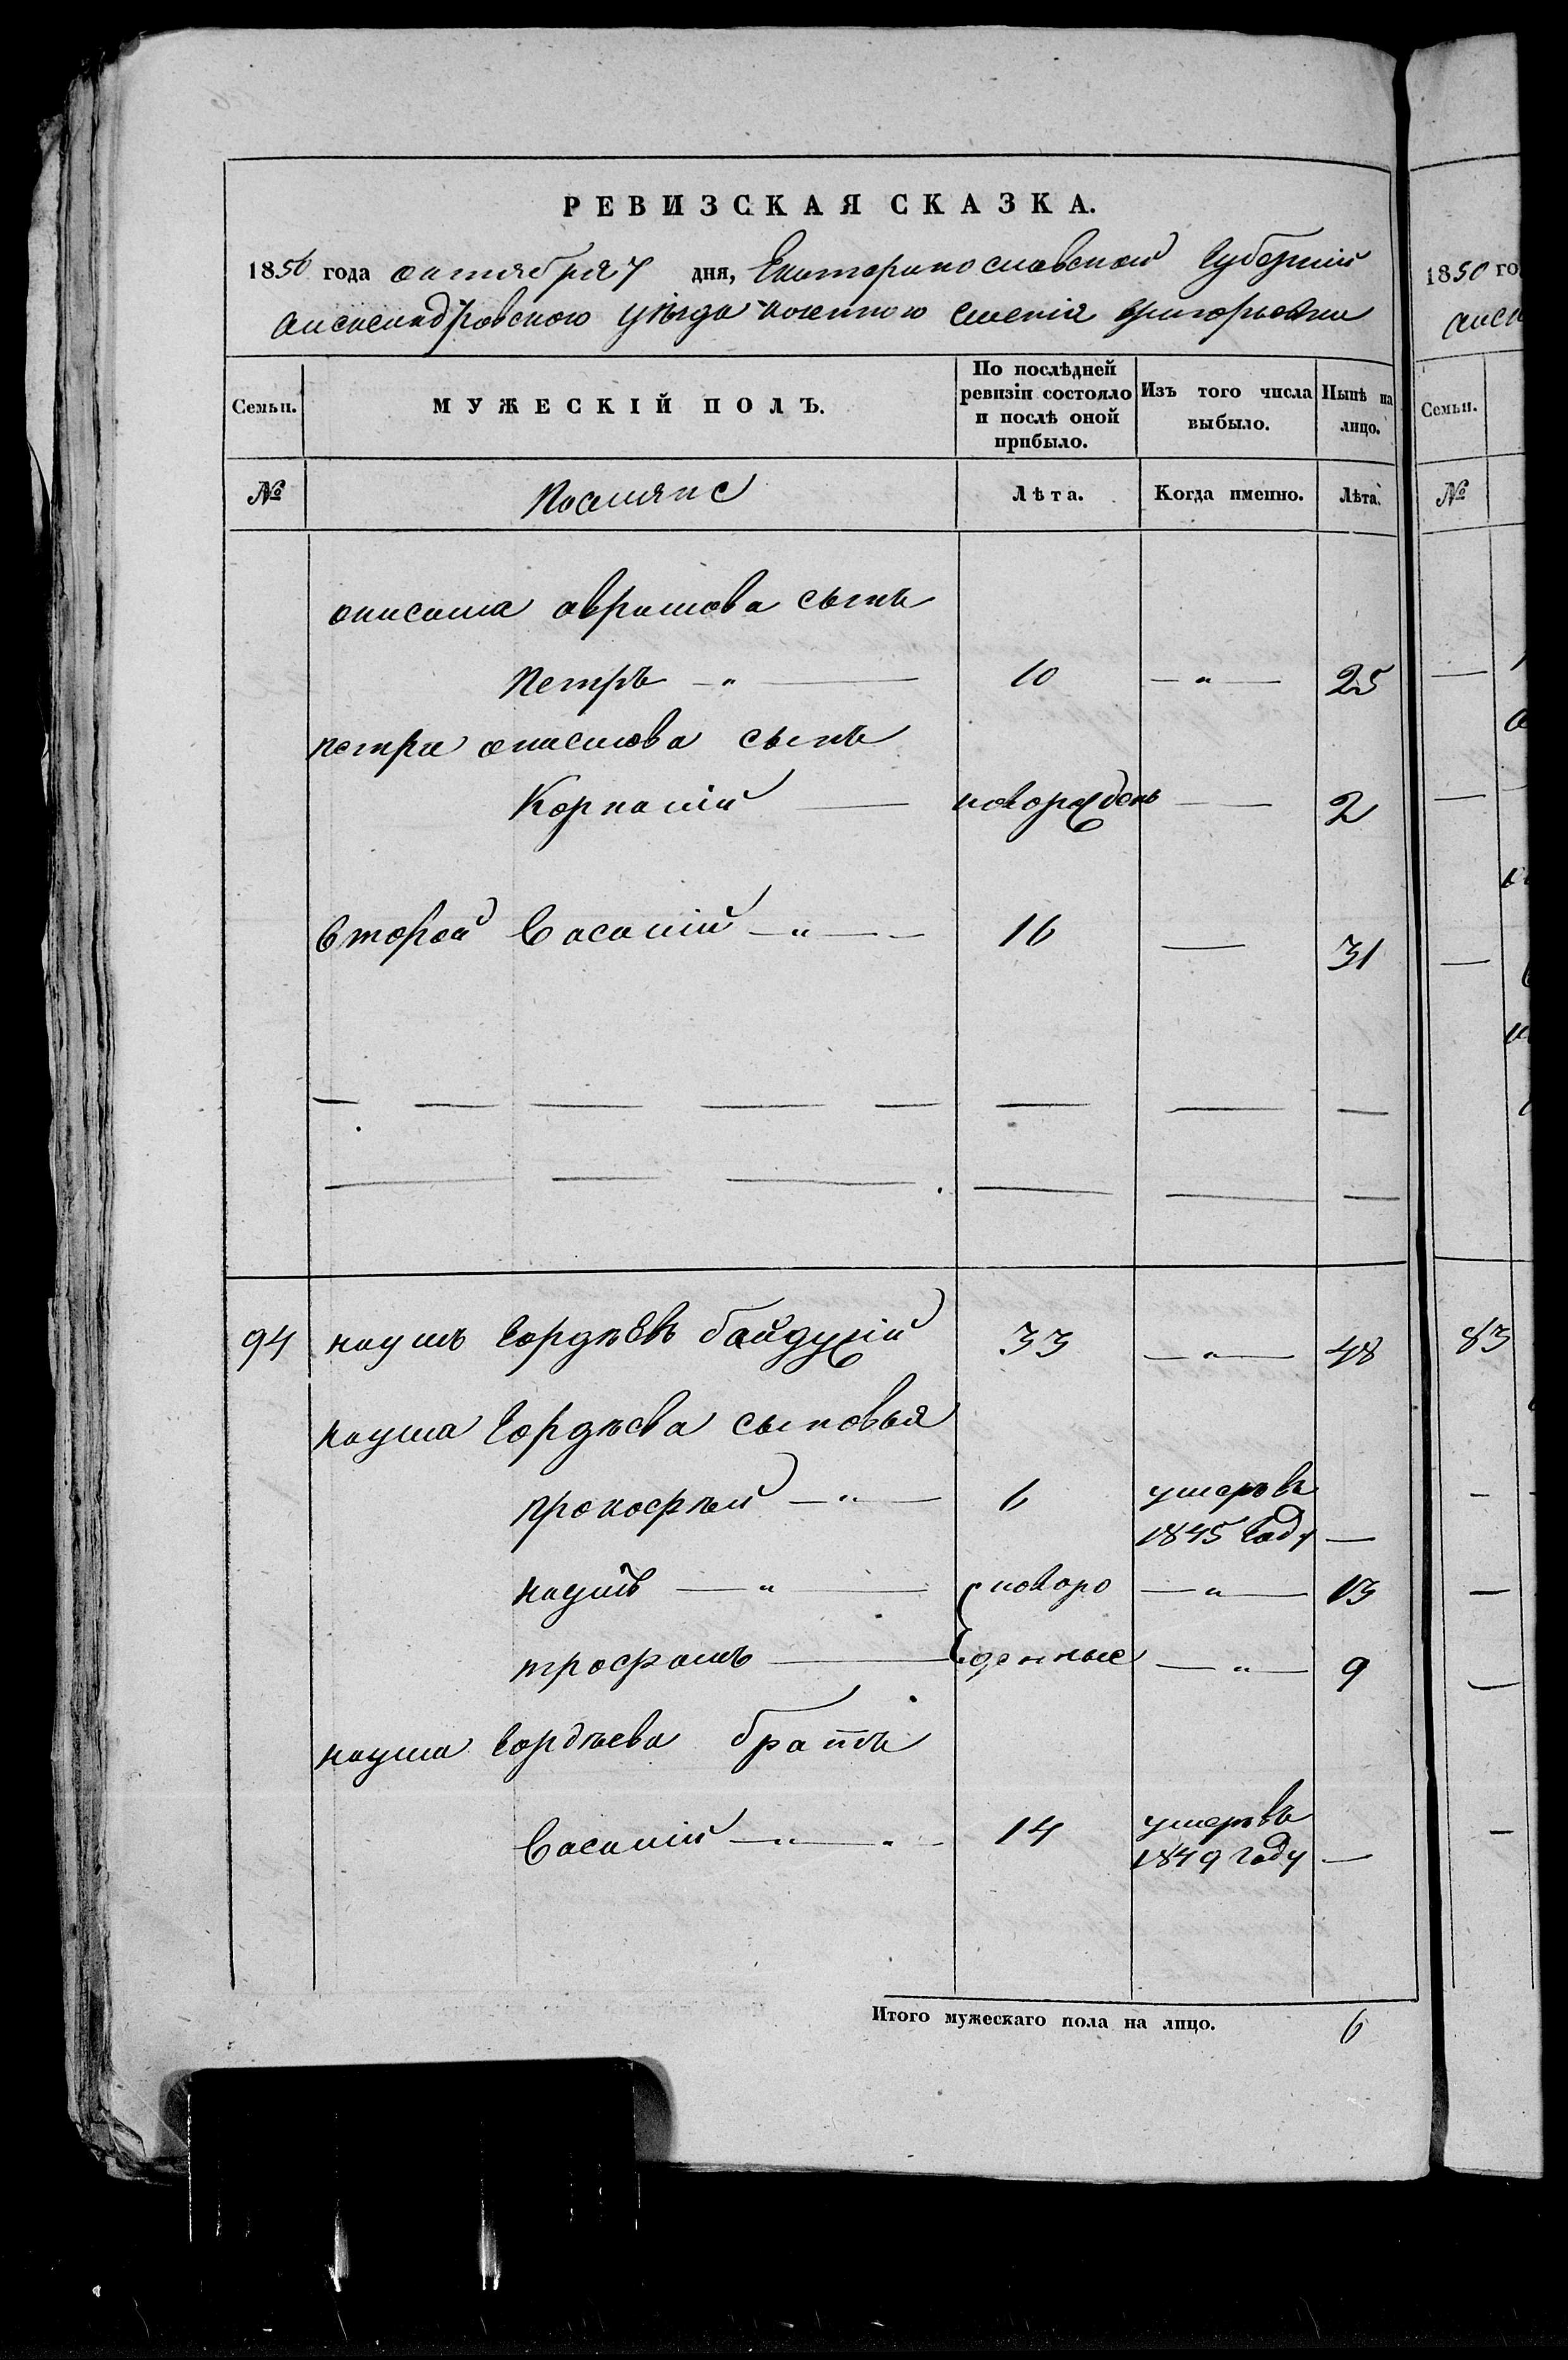 РЕВИЗСКАЯ СКАЗКА.
1850 года октября 7 дня, Екатеринославской Губерніи
Александровского уѣзда военного селенія Григорьевки
Семьи. МУЖЕСКІЙ ПОЛЪ. По послѣдней ревизіи состояло и послѣ оной прибыло. Изъ того числа выбыло. Нынѣ на лицо.
№ Поселяне Лѣта. Когда именно. Лѣта.
онисима аврамова сынъ
Петръ — " — 10 — " — 25
петра онисимова сынъ
Корнелій — новорожденъ — 2
второй Василій — " — 16 — 31
94 наумъ Гордѣевъ байдужій 33 — " — 48
наума Гордѣева сыновья
прокофѣй — " — 6 умеръ въ
1845 Году —
наумъ — " — новоро — " — 13
трофимъ — жденные — " — 9
наума Гордѣева братъ
Василій — " — 14 умеръ въ
1849 Году —
Итого мужескаго пола на лицо. 6
1850 го
Семьи.
№
83